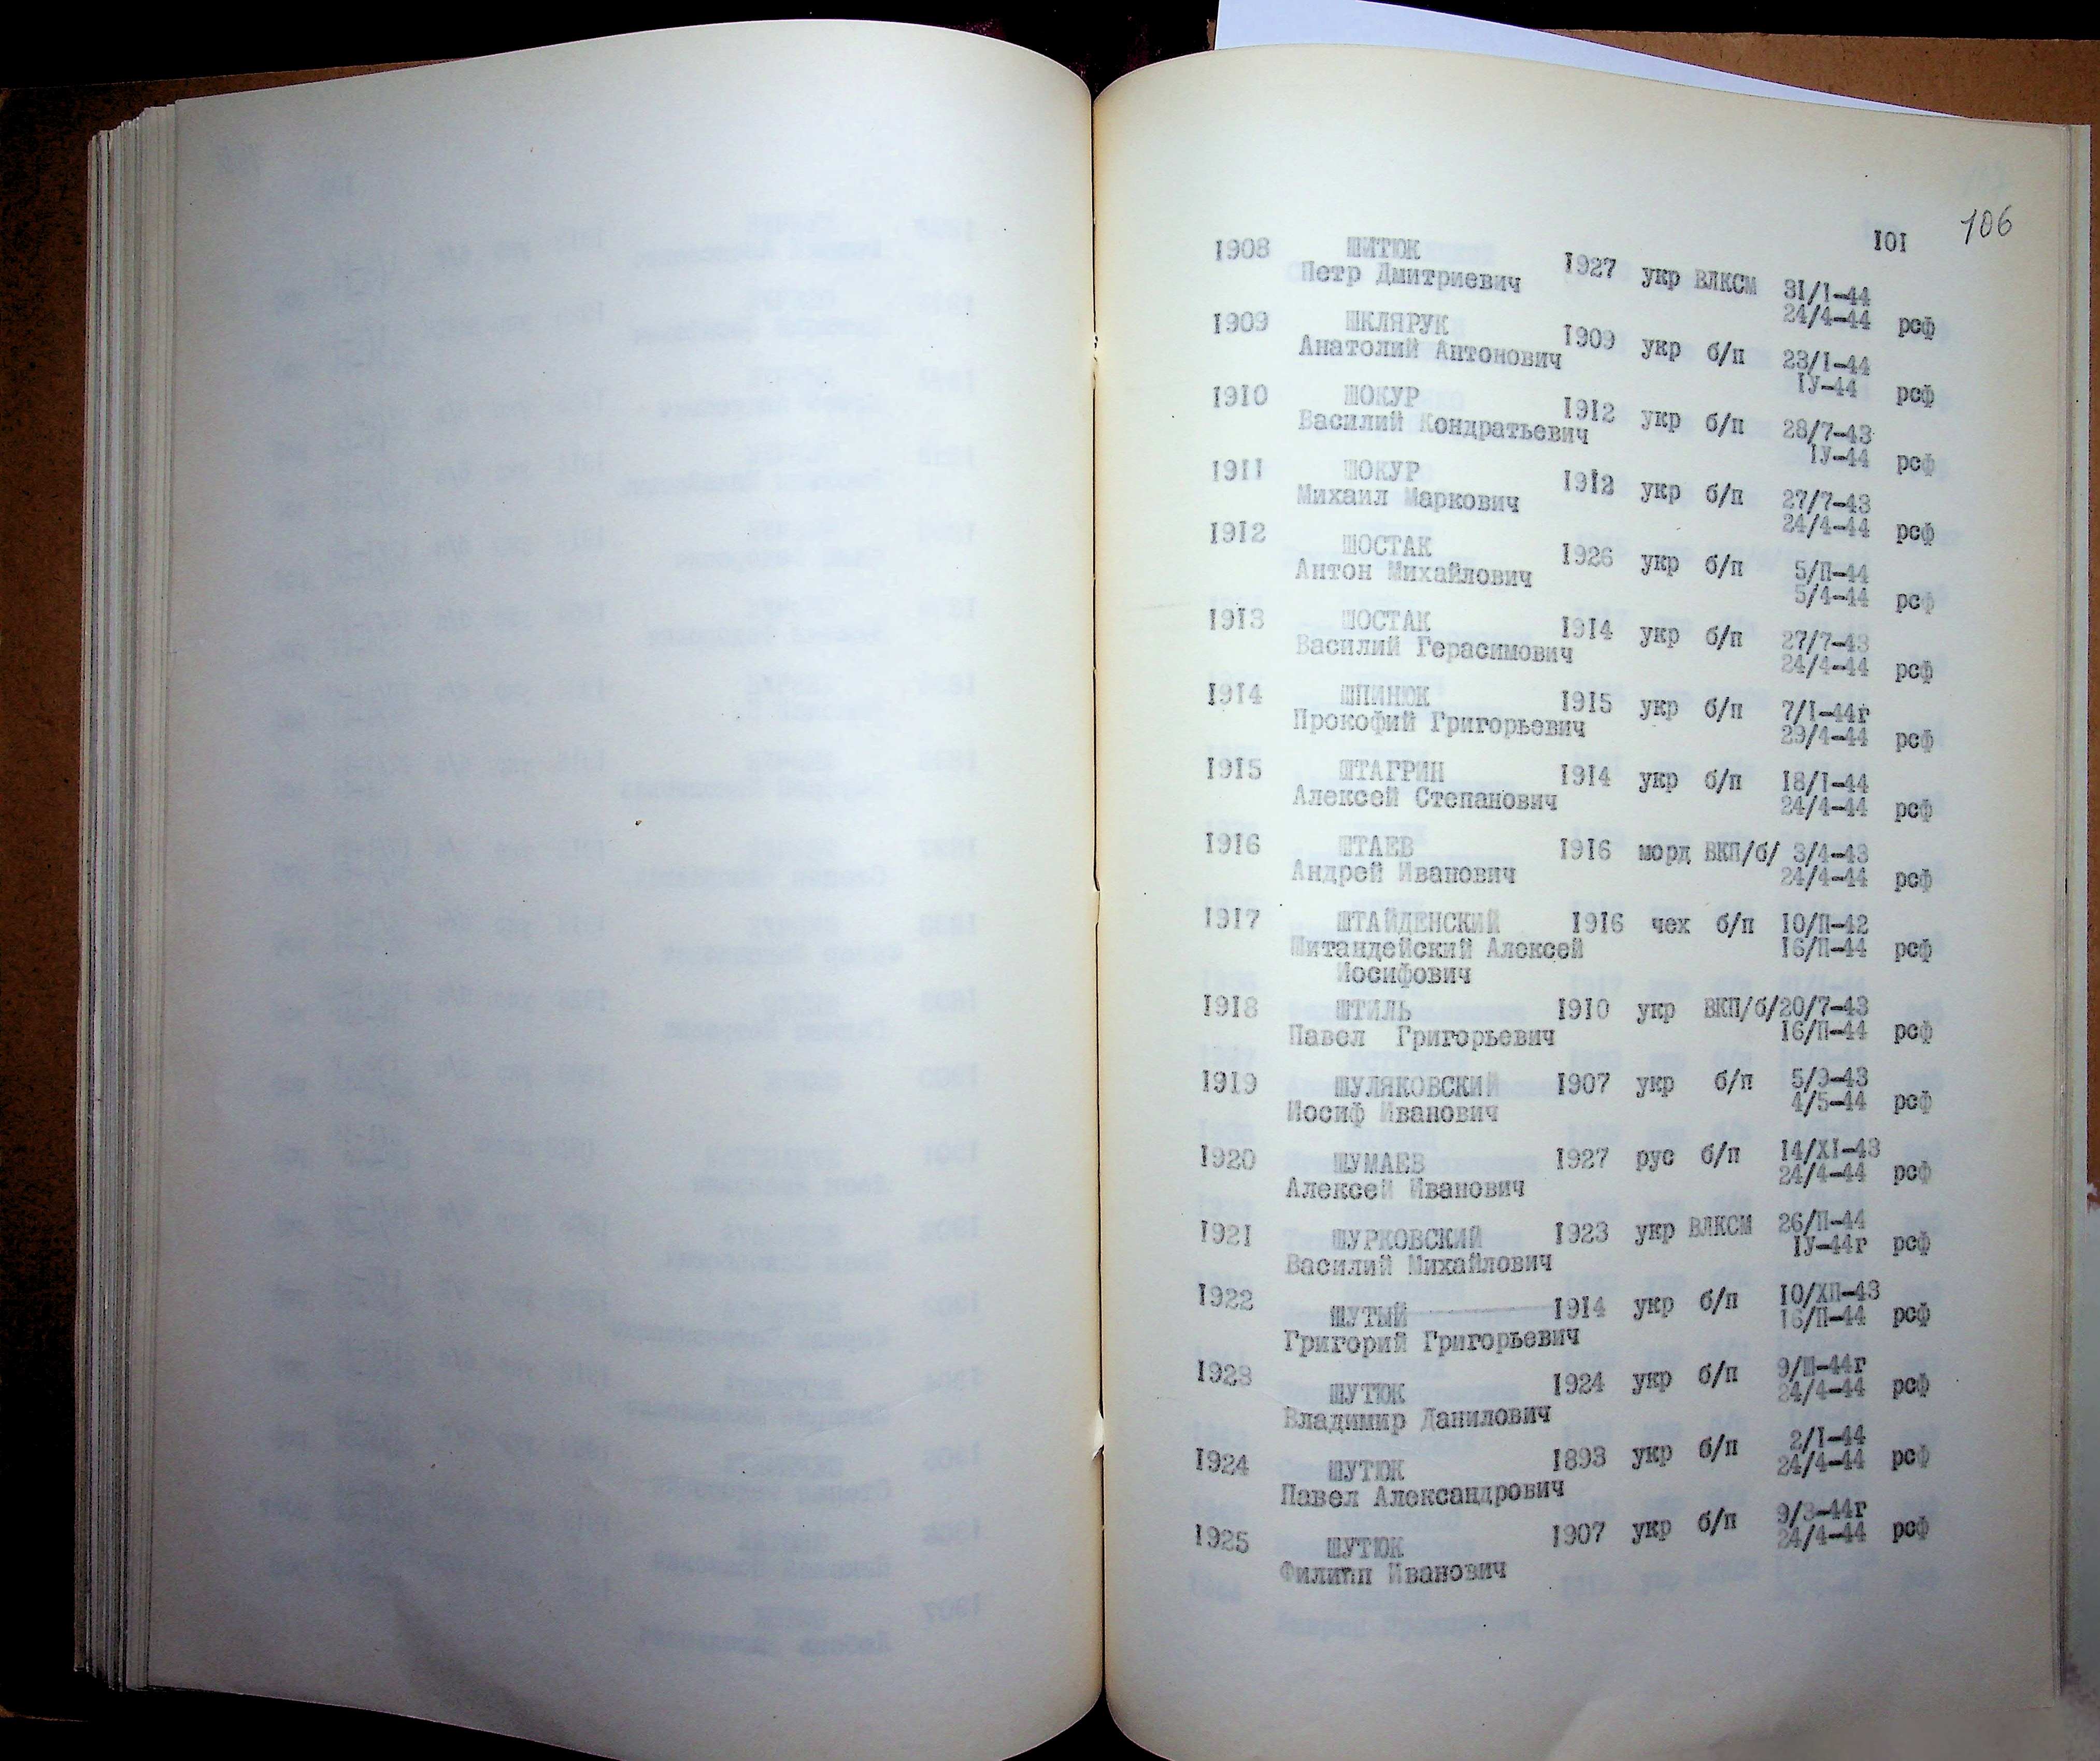 106
101
1908 ШИТЮК 1927 укр ВЛКСМ 31/I-44
Петр Дмитриевич 24/4-44 рсф
1909 ШКЛЯРУК 1909 укр б/п 23/I-44
Анатолий Антонович IУ-44 рсф
1910 ШОКУР 1912 укр б/п 28/7-43
Василий Кондратьевич IУ-44 рсф
1911 ШОКУР 1912 укр б/п 27/7-43
Михаил Маркович 24/4-44 рсф
1912 ШОСТАК 1926 укр б/п 5/П-44
Антон Михайлович 5/4-44 рсф
1913 ШОСТАК 1914 укр б/п 27/7-43
Василий Герасимович 24/4-44 рсф
1914 ШПИНЮК 1915 укр б/п 7/I-44г
Прокофий Григорьевич 29/4-44 рсф
1915 ШТАГРИН 1914 укр б/п 18/I-44
Алексей Степанович 24/4-44 рсф
1916 ШТАЕВ 1916 морд ВКП/б/ 3/4-43
Андрей Иванович 24/4-44 рсф
1917 ШТАЙДЕНСКИЙ 1916 чех б/п 10/П-42
Шитандейский Алексей 16/П-44 рсф
Иосифович
1918 ШТИЛЬ 1910 укр ВКП/б/20/7-43
Павел Григорьевич 16/П-44 рсф
1919 ШУЛЯКОВСКИЙ 1907 укр б/п 5/9-43
Иосиф Иванович 4/5-44 рсф
1920 ШУМАЕВ 1927 рус б/п 14/XI-43
Алексей Иванович 24/4-44 рсф
1921 ШУРКОВСКИЙ 1923 укр ВЛКСМ 26/П-44
Василий Михайлович IУ-44г рсф
1922 ШУТЫЙ 1914 укр б/п 10/ХП-43
Григорий Григорьевич 16/П-44 рсф
1923 ШУТЮК 1924 укр б/п 9/Ш-44г
Владимир Данилович 24/4-44 рсф
1924 ШУТЮК 1893 укр б/п 2/I-44
Павел Александрович 24/4-44 рсф
1925 ШУТЮК 1907 укр б/п 9/3-44г
Филипп Иванович 24/4-44 рсф